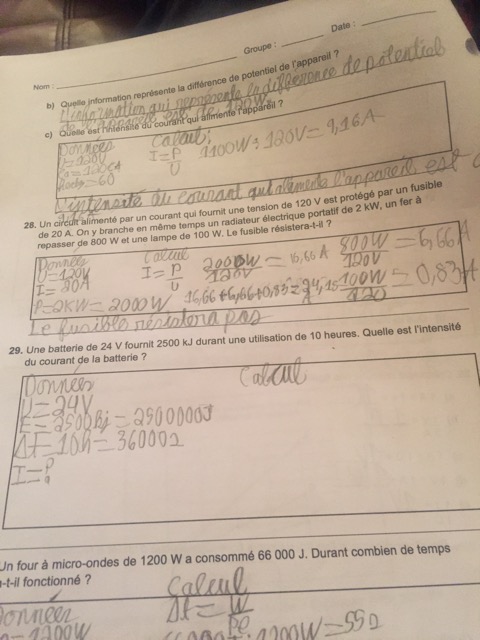 Nom :
Groupe :
Date :
b) Quelle information représente la différence de potentiel de l'appareil ?
L'information qui représente la différence de potentiel
de 120W
c) Quelle est l'intensité du courant qui alimente l'appareil ?
Données
Calcul:
U=120V
I=P/U 1100W÷120V=9,16A
=60
L'intensité du courant qui alimente l'appareil est
28. Un circuit alimenté par un courant qui fournit une tension de 120 V est protégé par un fusible
de 20 A. On y branche en même temps un radiateur électrique portatif de 2 kW, un fer à
repasser de 800 W et une lampe de 100 W. Le fusible résistera-t-il ?
Données
Calcul
U=120V
I=P/U 2000W/120V=16,66A 800W/120V=6,66A
P=2KW=2000W
16,66+6,66+0,83=24,15 100W/120=0,83A
Le fusible résistera pas
29. Une batterie de 24 V fournit 2500 kJ durant une utilisation de 10 heures. Quelle est l'intensité
du courant de la batterie ?
Données
Calcul
U=24V
E=2500kj=2500000J
Δt=10h=36000s
I=P/U
Un four à micro-ondes de 1200 W a consommé 66 000 J. Durant combien de temps
-t-il fonctionné ?
Données
Calcul
Δt=W/Pe
1200W=55s